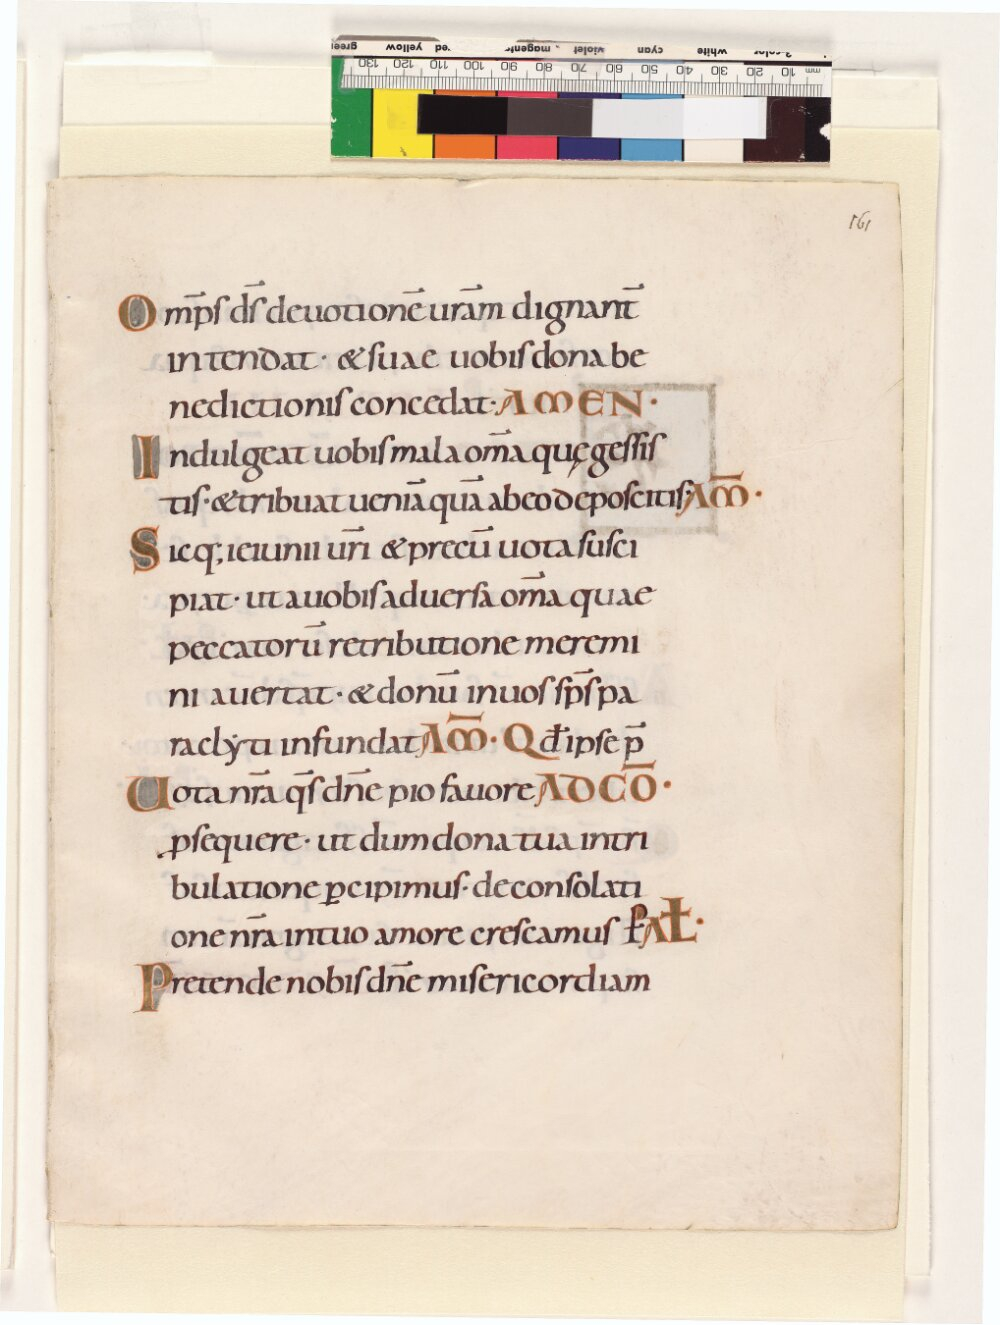 161
Om̄ps d̄s deuotionē ur̄am dignant̄
intendat· &suae uobis dona be
nedictionis concedat· AMEN·
Indulgeat uobis mala om̄a quę gessis
tis·&tribuat ueniā quā ab eo deposcitis· AM̄·
Sicq; ieiunii ur̄i &precū uota susci
piat· ut a uobis aduersa om̄a quae
peccatorū retributione meremi
ni auertat· &donū in uos sp̄s pa
raclyti infundat AM̄· Qđ ipse p̄
Uota nr̄a q̄s dn̄e pio fauore AD CŌ·
ꝓsequere· ut dum dona tua in tri
bulatione ꝑcipimus· de consolati
one nr̄a in tuo amore crescamus P̄ AŁ·
Pretende nobis dn̄e misericordiam